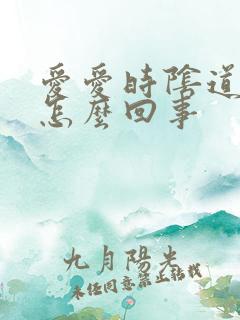 愛愛時陰道
怎麼回事
九月陽光
未经同意禁止转载